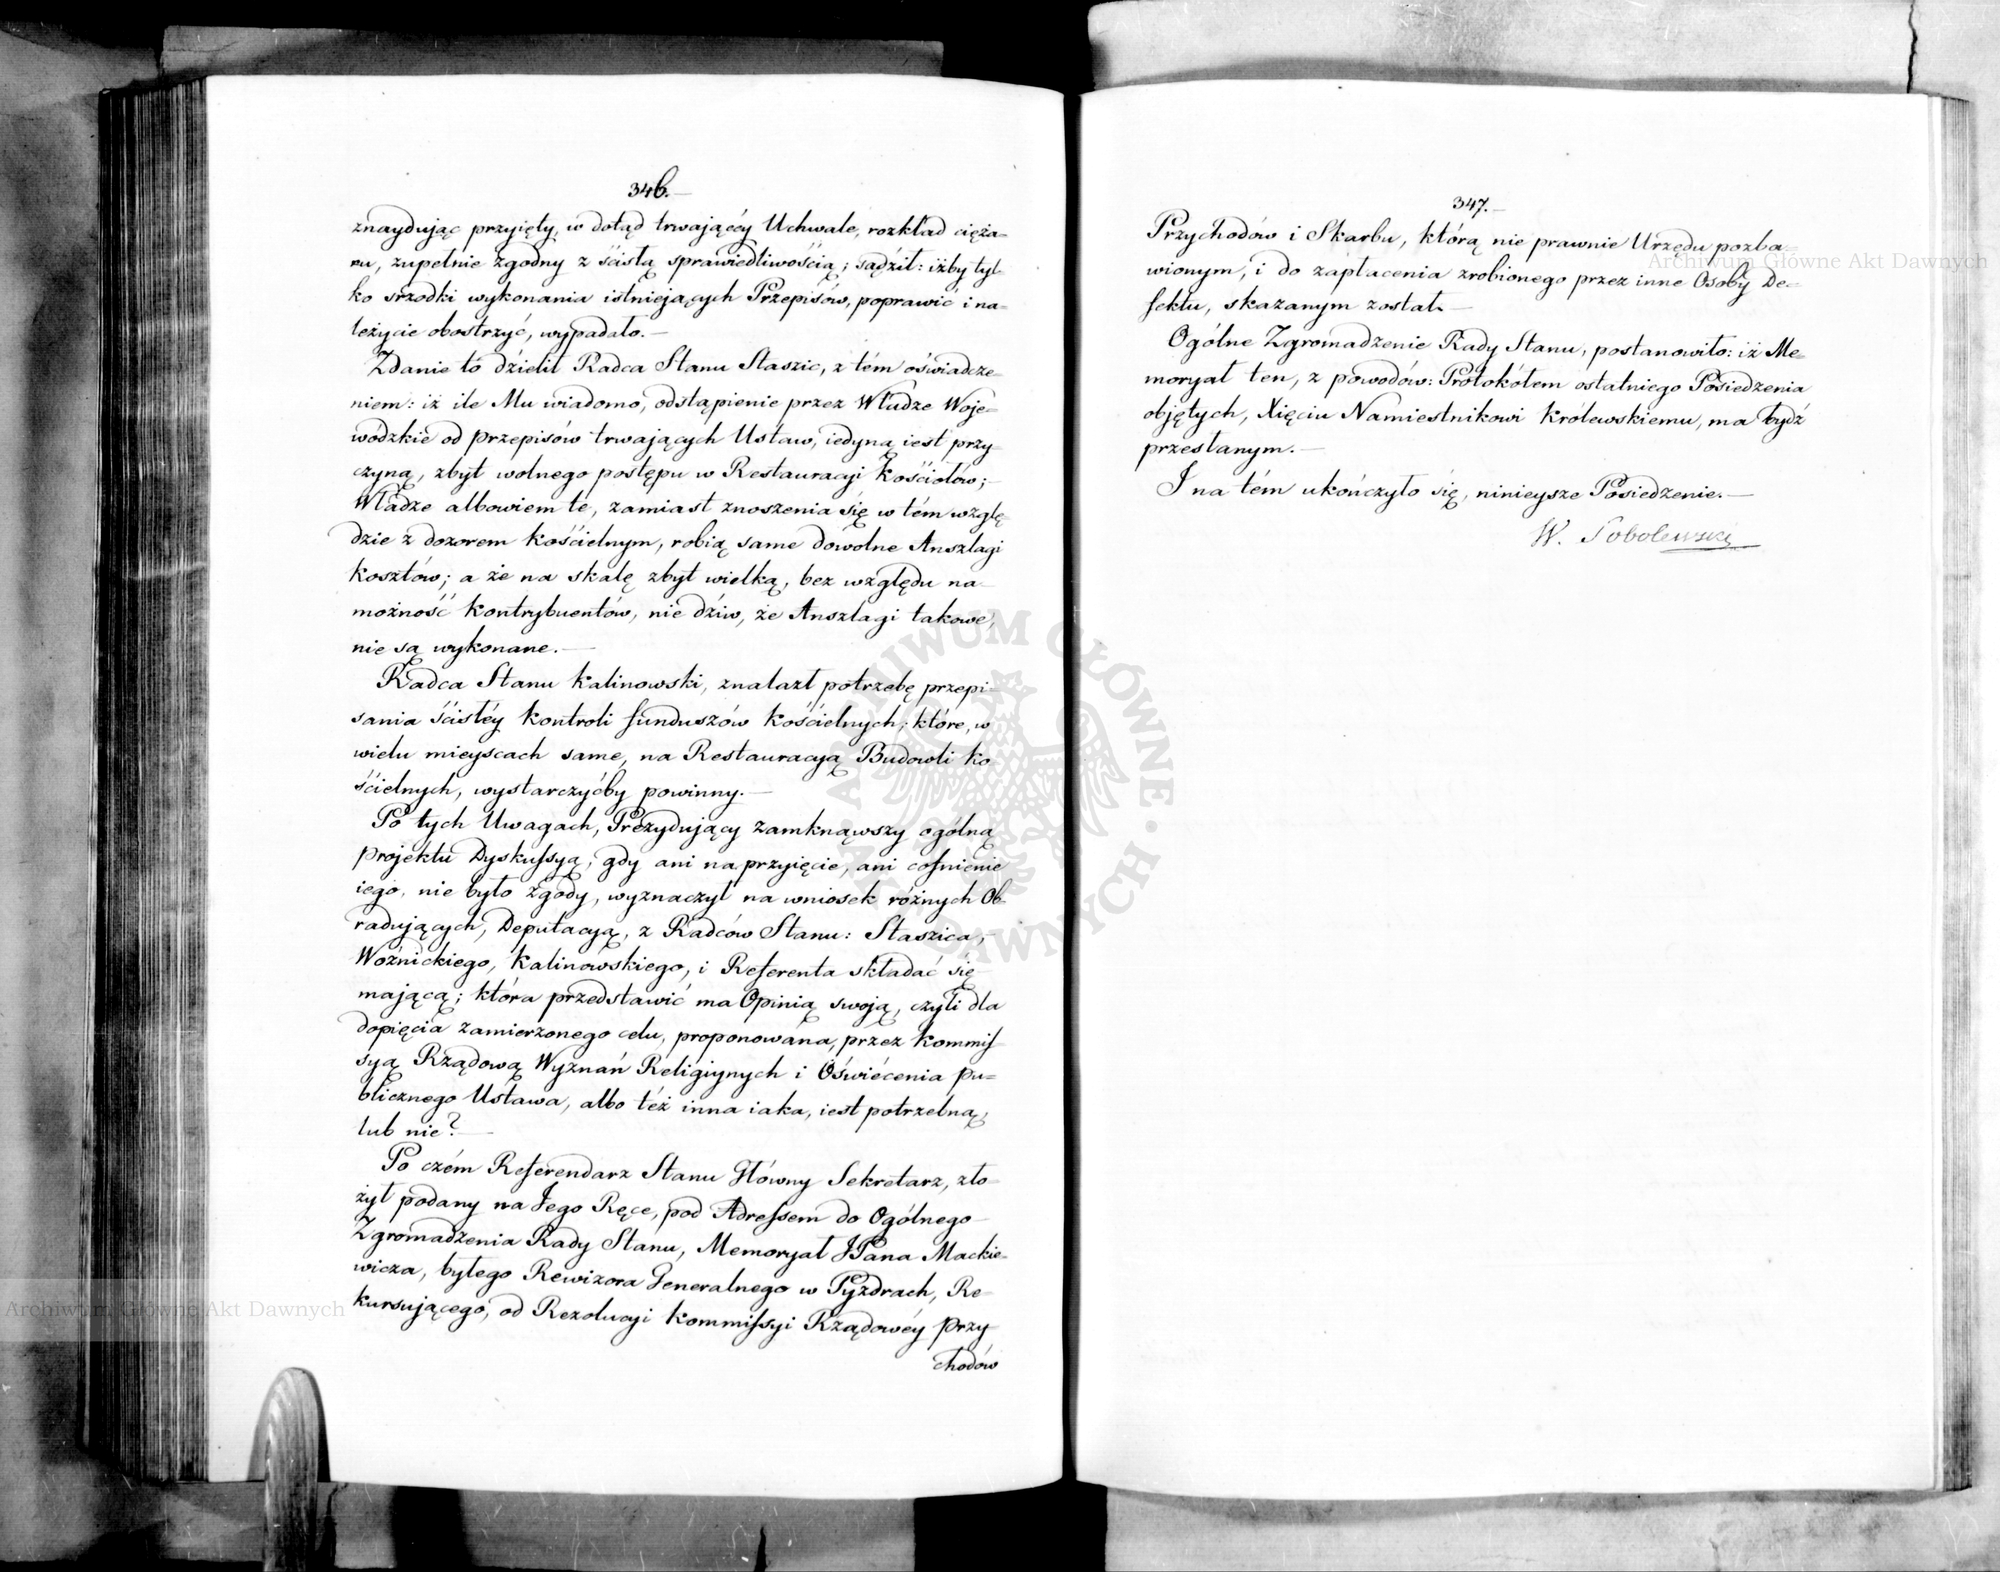 346.
znaydując przyięty, w dotąd trwaiącéy Uchwale, rozkład cięża=
ru, zupełnie zgodny z ścisłą sprawiedliwością; sądził: iżby tyl=
ko srzodki wykonania istniejących Przepisów, poprawić i na=
leżycie obostrzyć, wypadało.—
Zdanie to dzielił Radca Stanu Staszic, z tém oświadcze=
niem: iż ile Mu wiadomo, odstąpienie przez Władze Woje=
wódzkie od przepisów trwających Ustaw, iedyną iest przy=
czyną, zbyt wolnego postępu w Restauracyi Kościołów;—
Władze albowiem te, zamiast znoszenia się w tém wzglę=
dzie z dozorem kościelnym, robią same dowolne Anszlagi
kosztów; a że na skalę zbyt wielką, bez względu na
możność kontrybuentów, nie dziw, że Anszlagi takowe,
nie są wykonane.—
Radca Stanu Kalinowski, znalazł potrzebę przepi=
sania ścisłéy kontroli funduszów kościelnych; które, w
wielu mieyscach same, na Restauracyą Budowli ko=
ścielnych, wystarczyćby powinny.—
Po tych Uwagach, Prezydujący zamknąwszy ogólną
projektu Dyskussyą, gdy ani na przyięcie, ani cofnienie
iego, nie było zgody, wyznaczył na wniosek różnych Ob=
radujących, Deputacyą, z Radców Stanu: Staszica,—
Woźnickiego, Kalinowskiego, i Referenta składać się
mającą; która przedstawić ma Opinią swoją, czyli dla
dopięcia zamierzonego celu, proponowana, przez Kommis=
syą Rządową Wyznań Religiynych i Oświécenia pu=
blicznego Ustawa, albo też inna iaka, iest potrzebną,
lub nie?—
Po czém Referendarz Stanu Główny Sekretarz, zło=
żył podany na Jego Ręce, pod Adressem do Ogólnego
Zgromadzenia Rady Stanu, Memoryał JPana Mackie=
wicza, byłego Rewizora Generalnego w Pyzdrach, Re=
kursującego, od Rezolucyi Kommissyi Rządowéy Przy=
chodów
347.
Przychodów i Skarbu, którą nie prawnie Urzędu pozba=
wionym, i do zapłacenia zrobionego przez inne Osoby De=
fektu, skazanym został.—
Ogólne Zgromadzenie Rady Stanu, postanowiło: iż Me=
moryał ten, z powodów: Protokółem ostatniego Posiedzenia
objętych, Xięciu Namiestnikowi Królewskiemu, ma bydź
przesłanym.—
I na tém ukończyło się, ninieysze Posiedzenie.—
W. Sobolewski
Archiwum Główne Akt Dawnych
Archiwum Główne Akt Dawnych
ARCHIWUM GŁÓWNE AKT DAWNYCH